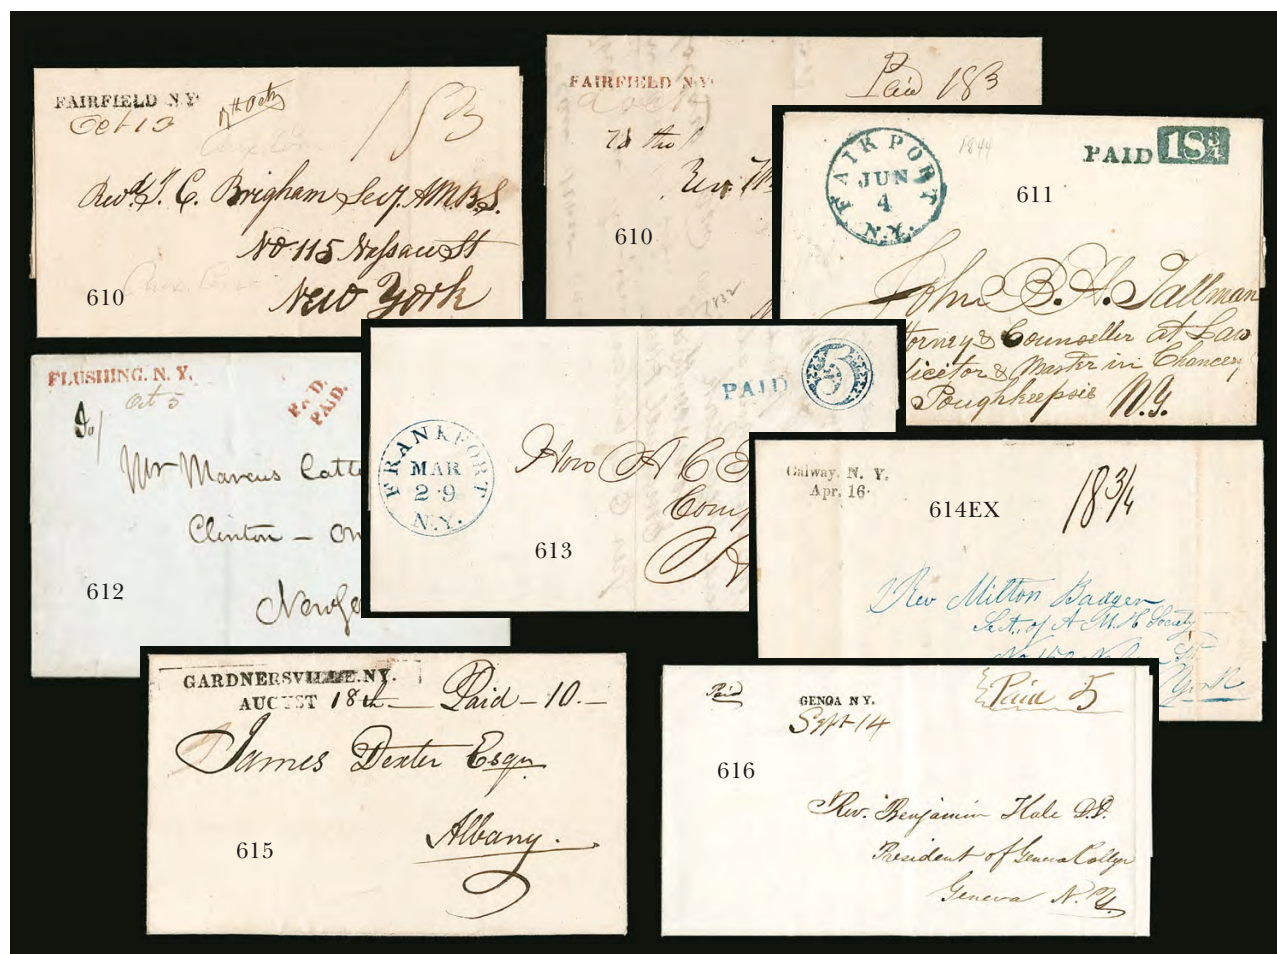 FAIRFIELD N.Y.
Oct 13
7th Oct
183
Revd. J. C. Brigham Secy. A.M.B.S.
No 115 Nassau St
New York
610
FAIRFIELD N.Y.
Paid 183
Rev.
1832
610
FAIRPORT
JUN
4
N.Y.
1844
PAID 18 3/4
611
John B. H. Tallman
torney & Counseller at Law
licitor & Master in Chancery
Poughkeepsie N.Y.
FLUSHING. N. Y.
Oct 5
PAID.
PAID.
Mr Marcus Catt
Clinton – On
New
612
FRANKFORT
MAR
29
N.Y.
PAID 5
Hon A C
Com
A
613
Galway, N. Y.
Apr. 16
614EX
18 3/4
Rev Milton Badger
Sect. of A. M. H Society
York
GARDNERSVILLE.NY.
AUGUST 18th — Paid – 10. –
James Dexter Esqr
Albany.
615
Paid
GENOA N Y.
Sept 14
Paid 5
616
Rev. Benjamin Hale D.D.
President of Geneva College
Geneva N. Y.